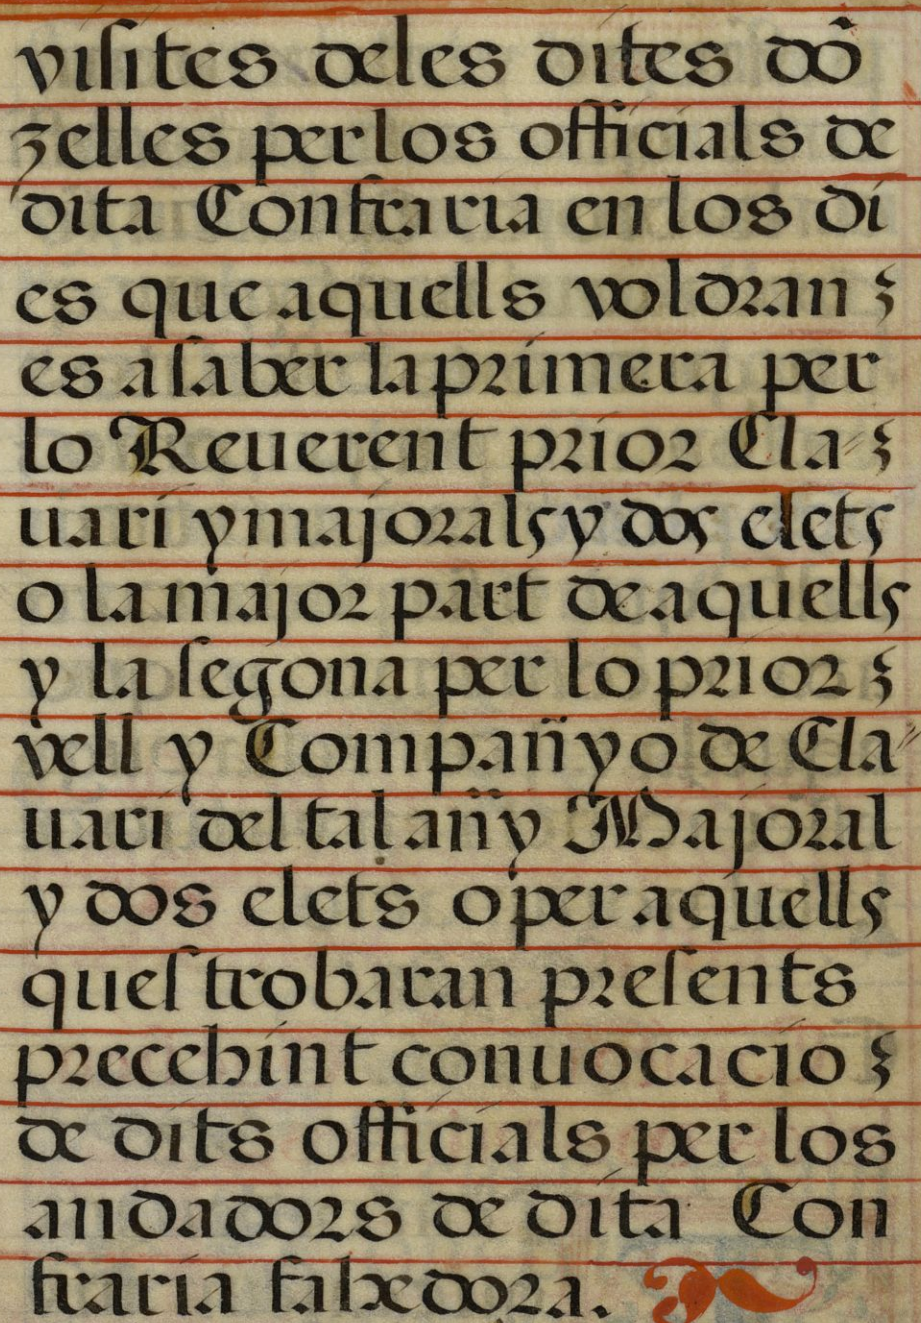 visites deles dites dõ
zelles perlos officials de
dita Confraria en los di
es que aquells voldran
es asaber la primera per
lo Reuerent prior Cla-
uari y majorals y dos elets
o la major part de aquells
y la segona per lo prior
vell y Compañyo de Cla-
uari del tal añy Majoral
y dos elets o per aquells
ques trobaran presents
precehint conuocacio
de dits officials per los
andadors de dita Con
fraria fahedora.